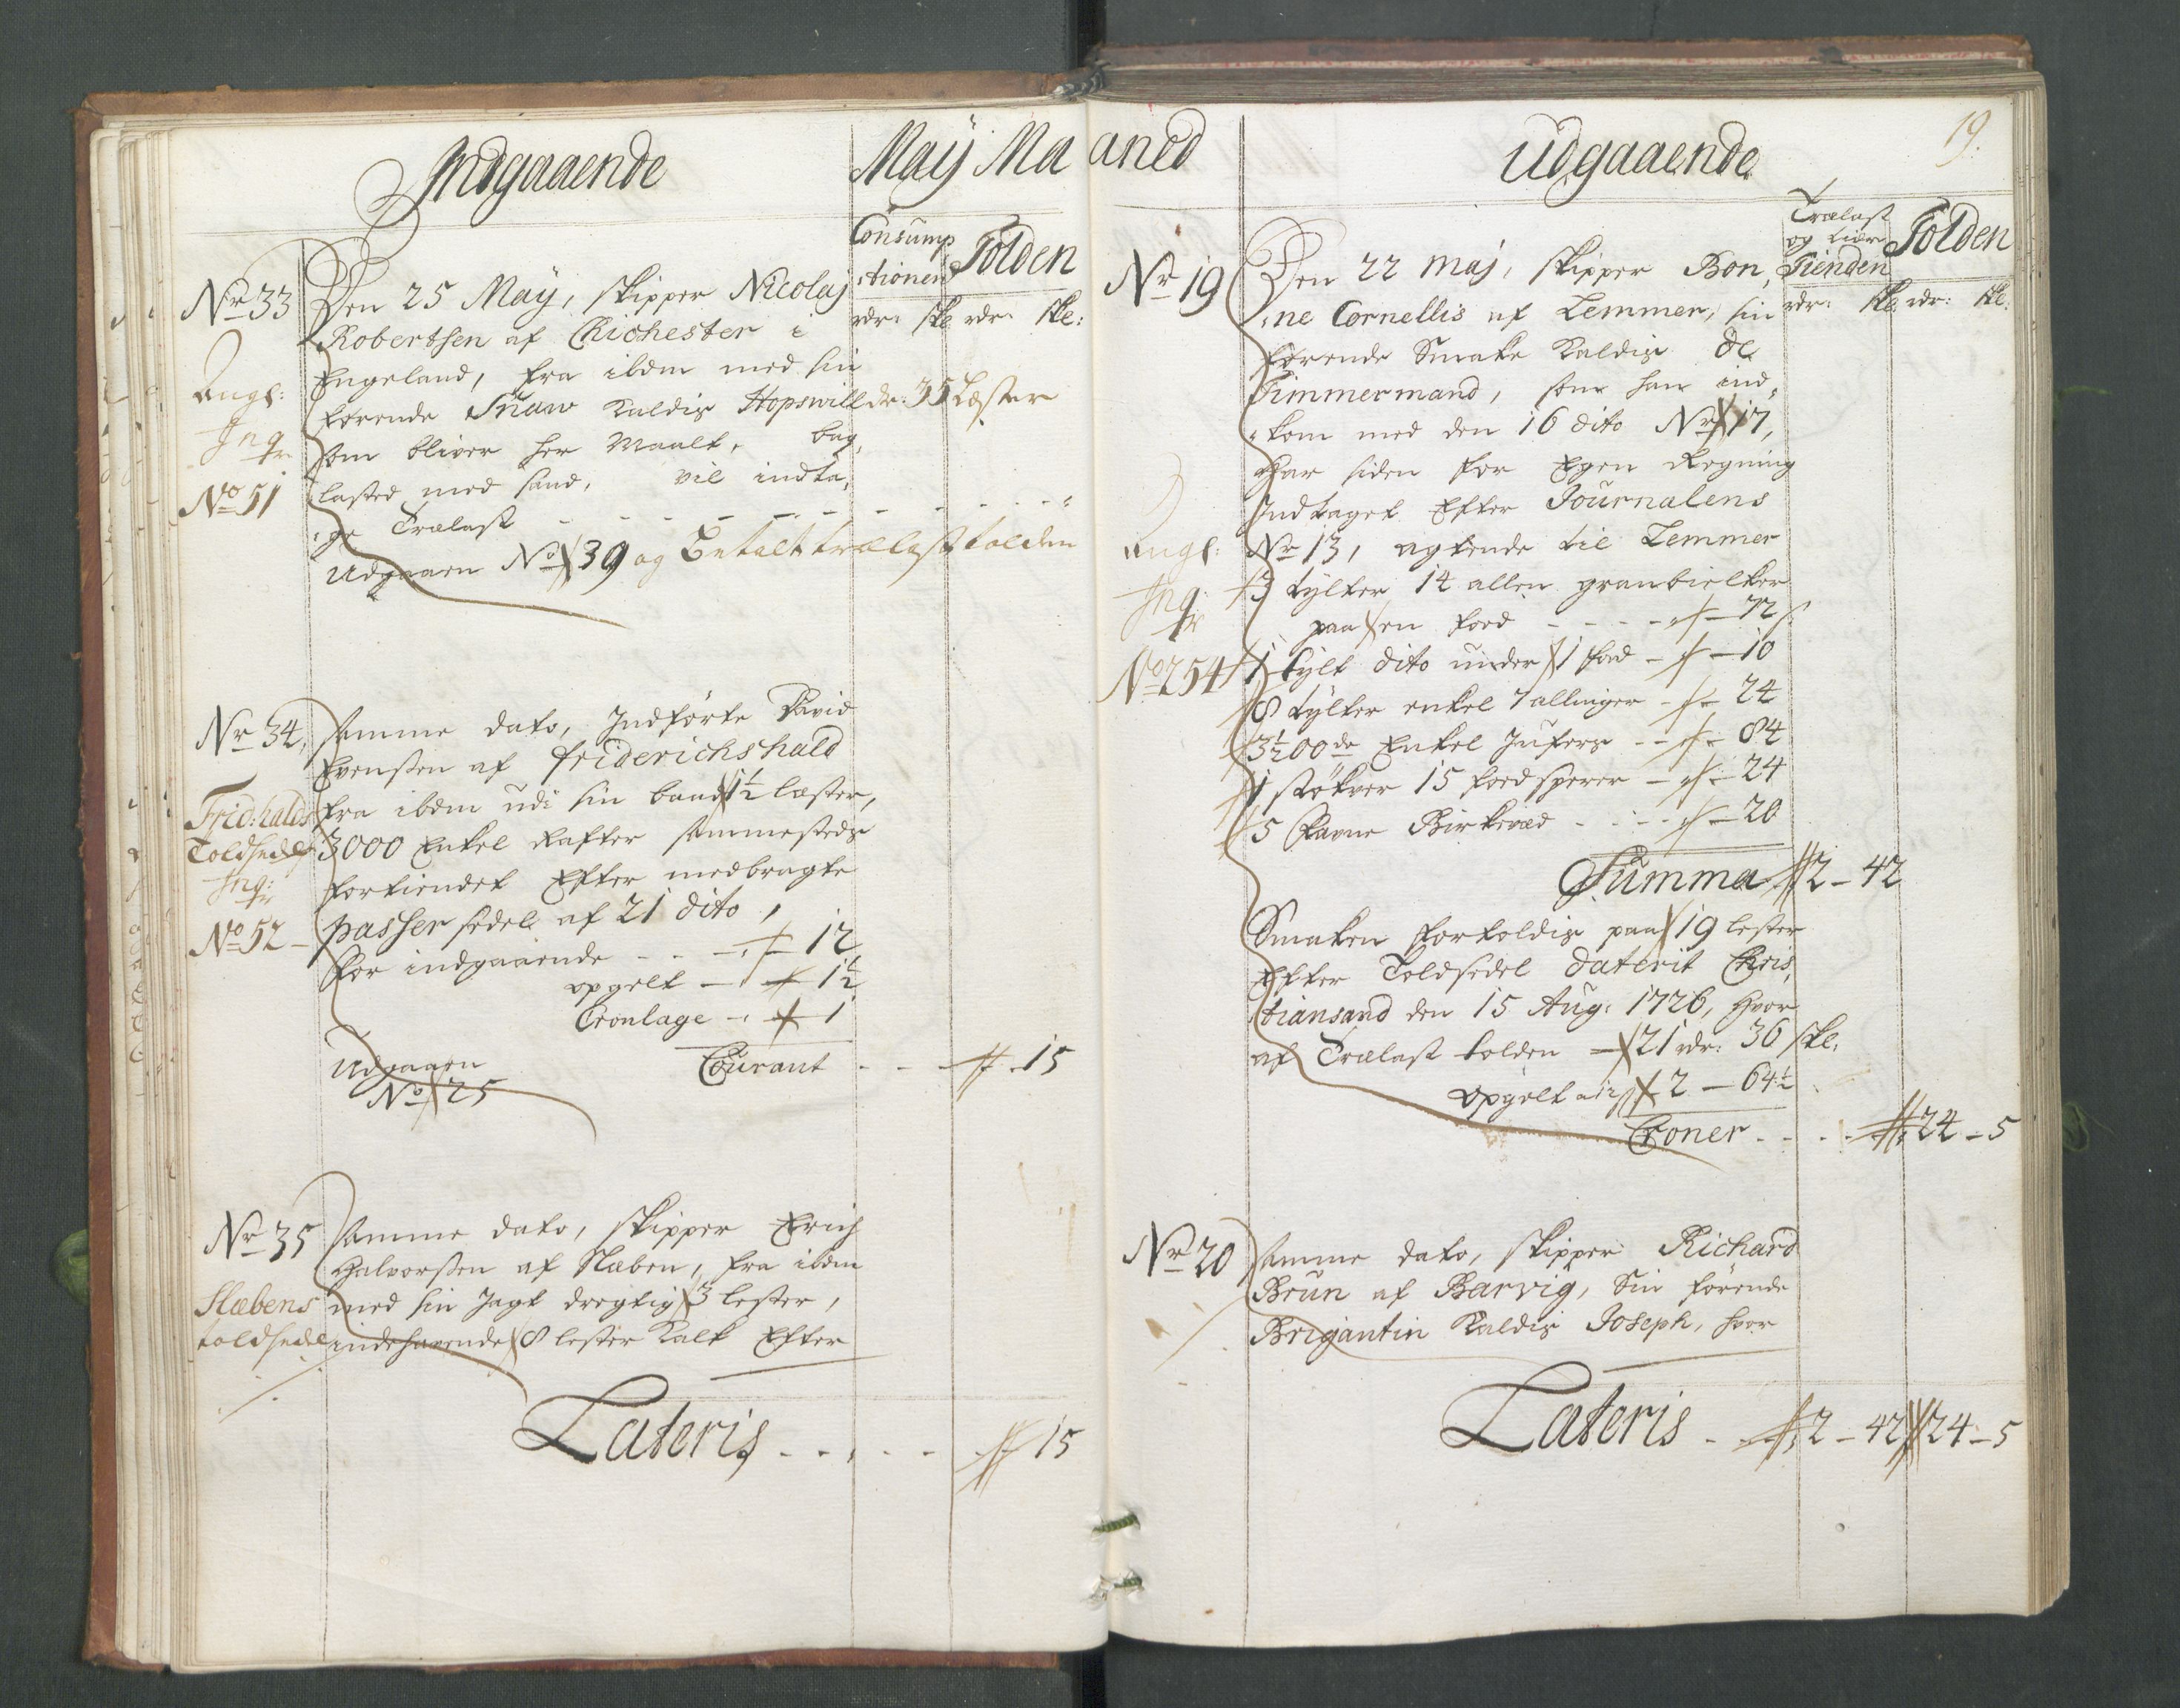 Indgaaende
May Ma
Consump
:tionen
Tolden
rdr: ske rdr: ske:
Nr 33
Den 25 Maÿ, skipper Nicolaj
Robertsen af Chichester i
Engeland, fra ibdm med sin
førende Snaw Kaldis Hopswill dr: 35 Læster
som bliver her Maalt, bag,
lasted med sand, vil indta,
:ge Trælast
Udgaaen No 39 og Betalt trælast tolden
Engl:
Inq
No 51
Nr 34,
samme dato, Indførte David
Evensen af friderichshald
fra ibdm udi sin baad 1½ læster,
3000 Enkel Rafter sammesteds
fortiendet Efter medbragte
passer sedel af 21 dito,
for indgaaende - 12
opgelt - 1½
Cronlage - 1
Courant - 15
Udgaaen
No 25
Frid:halds
Toldsedel
Inq:
No 52
Nr 35
samme dato, skipper Erich
Halvorsen af Slæben, fra ibdm
med sin Jagt dregtig 3 lester,
indehavende 8 lester Kalk Efter
Slæbens
toldsedel
Lateris - 15
aned
udgaaende
19.
Trælast
og
Tienden
Tolden
rdr: ske: rdr: ske:
Nr 19
Den 22 maj, skipper Bon,
:ne Cornellis af Lemmer, sin
førende Smake Kaldis De
Timmermand, som han ind,
:kom med den 16 dito Nr 17,
Har siden for Egen Regning
Indtaget Efter Journalens
Nr 13, agtende til Lemmer
3 tylter 14 allen granbielker
paa en foed - 72
1 tylt dito under 1 foed - 10
8 tylter enkel 7 allinger - 24
3½ 00de Enkel Jufers - 84
1 støkver 15 foed sperer - 24
5 Favne Birkeved - 20
Summa 2 - 42
Smaken fortoldis paa 19 lester
Efter Toldsedel daterit Chris,
:tiansand den 15 Aug: 1726, hvor
af Trælast tolden - 21 rdr: 36 ske:
opgelt a 12 2 - 64½
Croner - 24 - 5
Engl:
Inq:
No 254
Nr 20
samme dato, skipper Richard
Brun af Barvig, Sin førende
Brigantin Kaldis Joseph, hvor
Lateris - 2 - 42 24 - 5